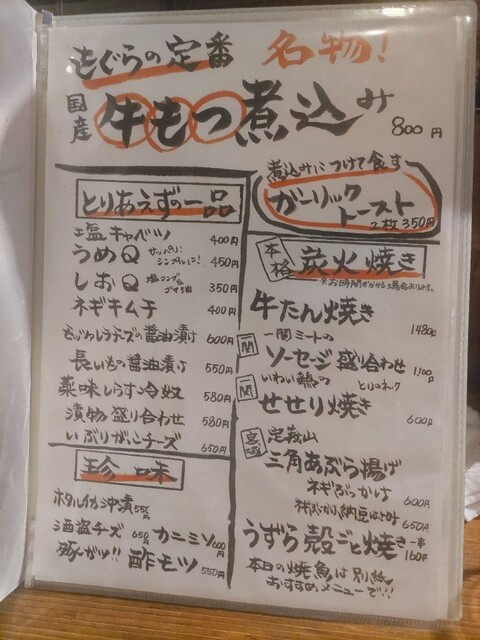 もぐらの定番 名物!
国産 牛もつ煮込み 800円
とりあえずの一品
塩キャベツ 400円
うめQ サッパリ! シンプルに! 450円
しおQ 塩コンブと ゴマ油 350円
ネギキムチ 400円
もッツァレラチーズの醤油漬け 600円
長いもの醤油漬け 550円
薬味しらす冷奴 580円
漬物盛り合わせ 580円
いぶりがっこチーズ 650円
珍味
ホタルイカ沖漬 550円
酒盗チーズ 650円 カニミソ 600円
豚ガツ!! 酢モツ 550円
煮込みにつけて食す
ガーリック
トースト
2枚350円
本格 炭火焼き
※お時間がかかる場合あります。
牛たん焼き 1480円
一関 一関ミートの
ソーセージ盛り合わせ 1,100円
一関 いわい鶏の とりのネック
せせり焼き 600円
宮城 定義山
三角あぶら揚げ
ネギぶっかけ 600円
ネギぶっかけ納豆はさみ 650円
うずら殻ごと焼き 一串 160円
本日の焼魚は別紙
おすすめメニューで!!